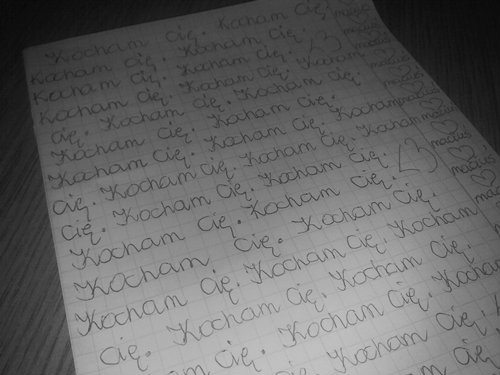 Kocham Cię. Kocham Cię.
Kocham Cię. Kocham Cię.
Kocham Cię. Kocham Cię. <3
Kocham Cię. Kocham Cię. Kocham
Cię. Kocham Cię. Kocham Cię.
Kocham Cię. Kocham Cię.
Kocham Cię. Kocham Cię. Kocham
Cię. Kocham Cię. Kocham Cię. Kocham
Cię. Kocham Cię. Kocham Cię. <3
Kocham Cię. Kocham Cię.
Kocham Cię. Kocham Cię.
Kocham Cię. Kocham Cię. Kocham
Cię. Kocham Cię. Kocham Cię.
Kocham Cię. Kocham Cię. Kocham
Cię. Kocham Cię.